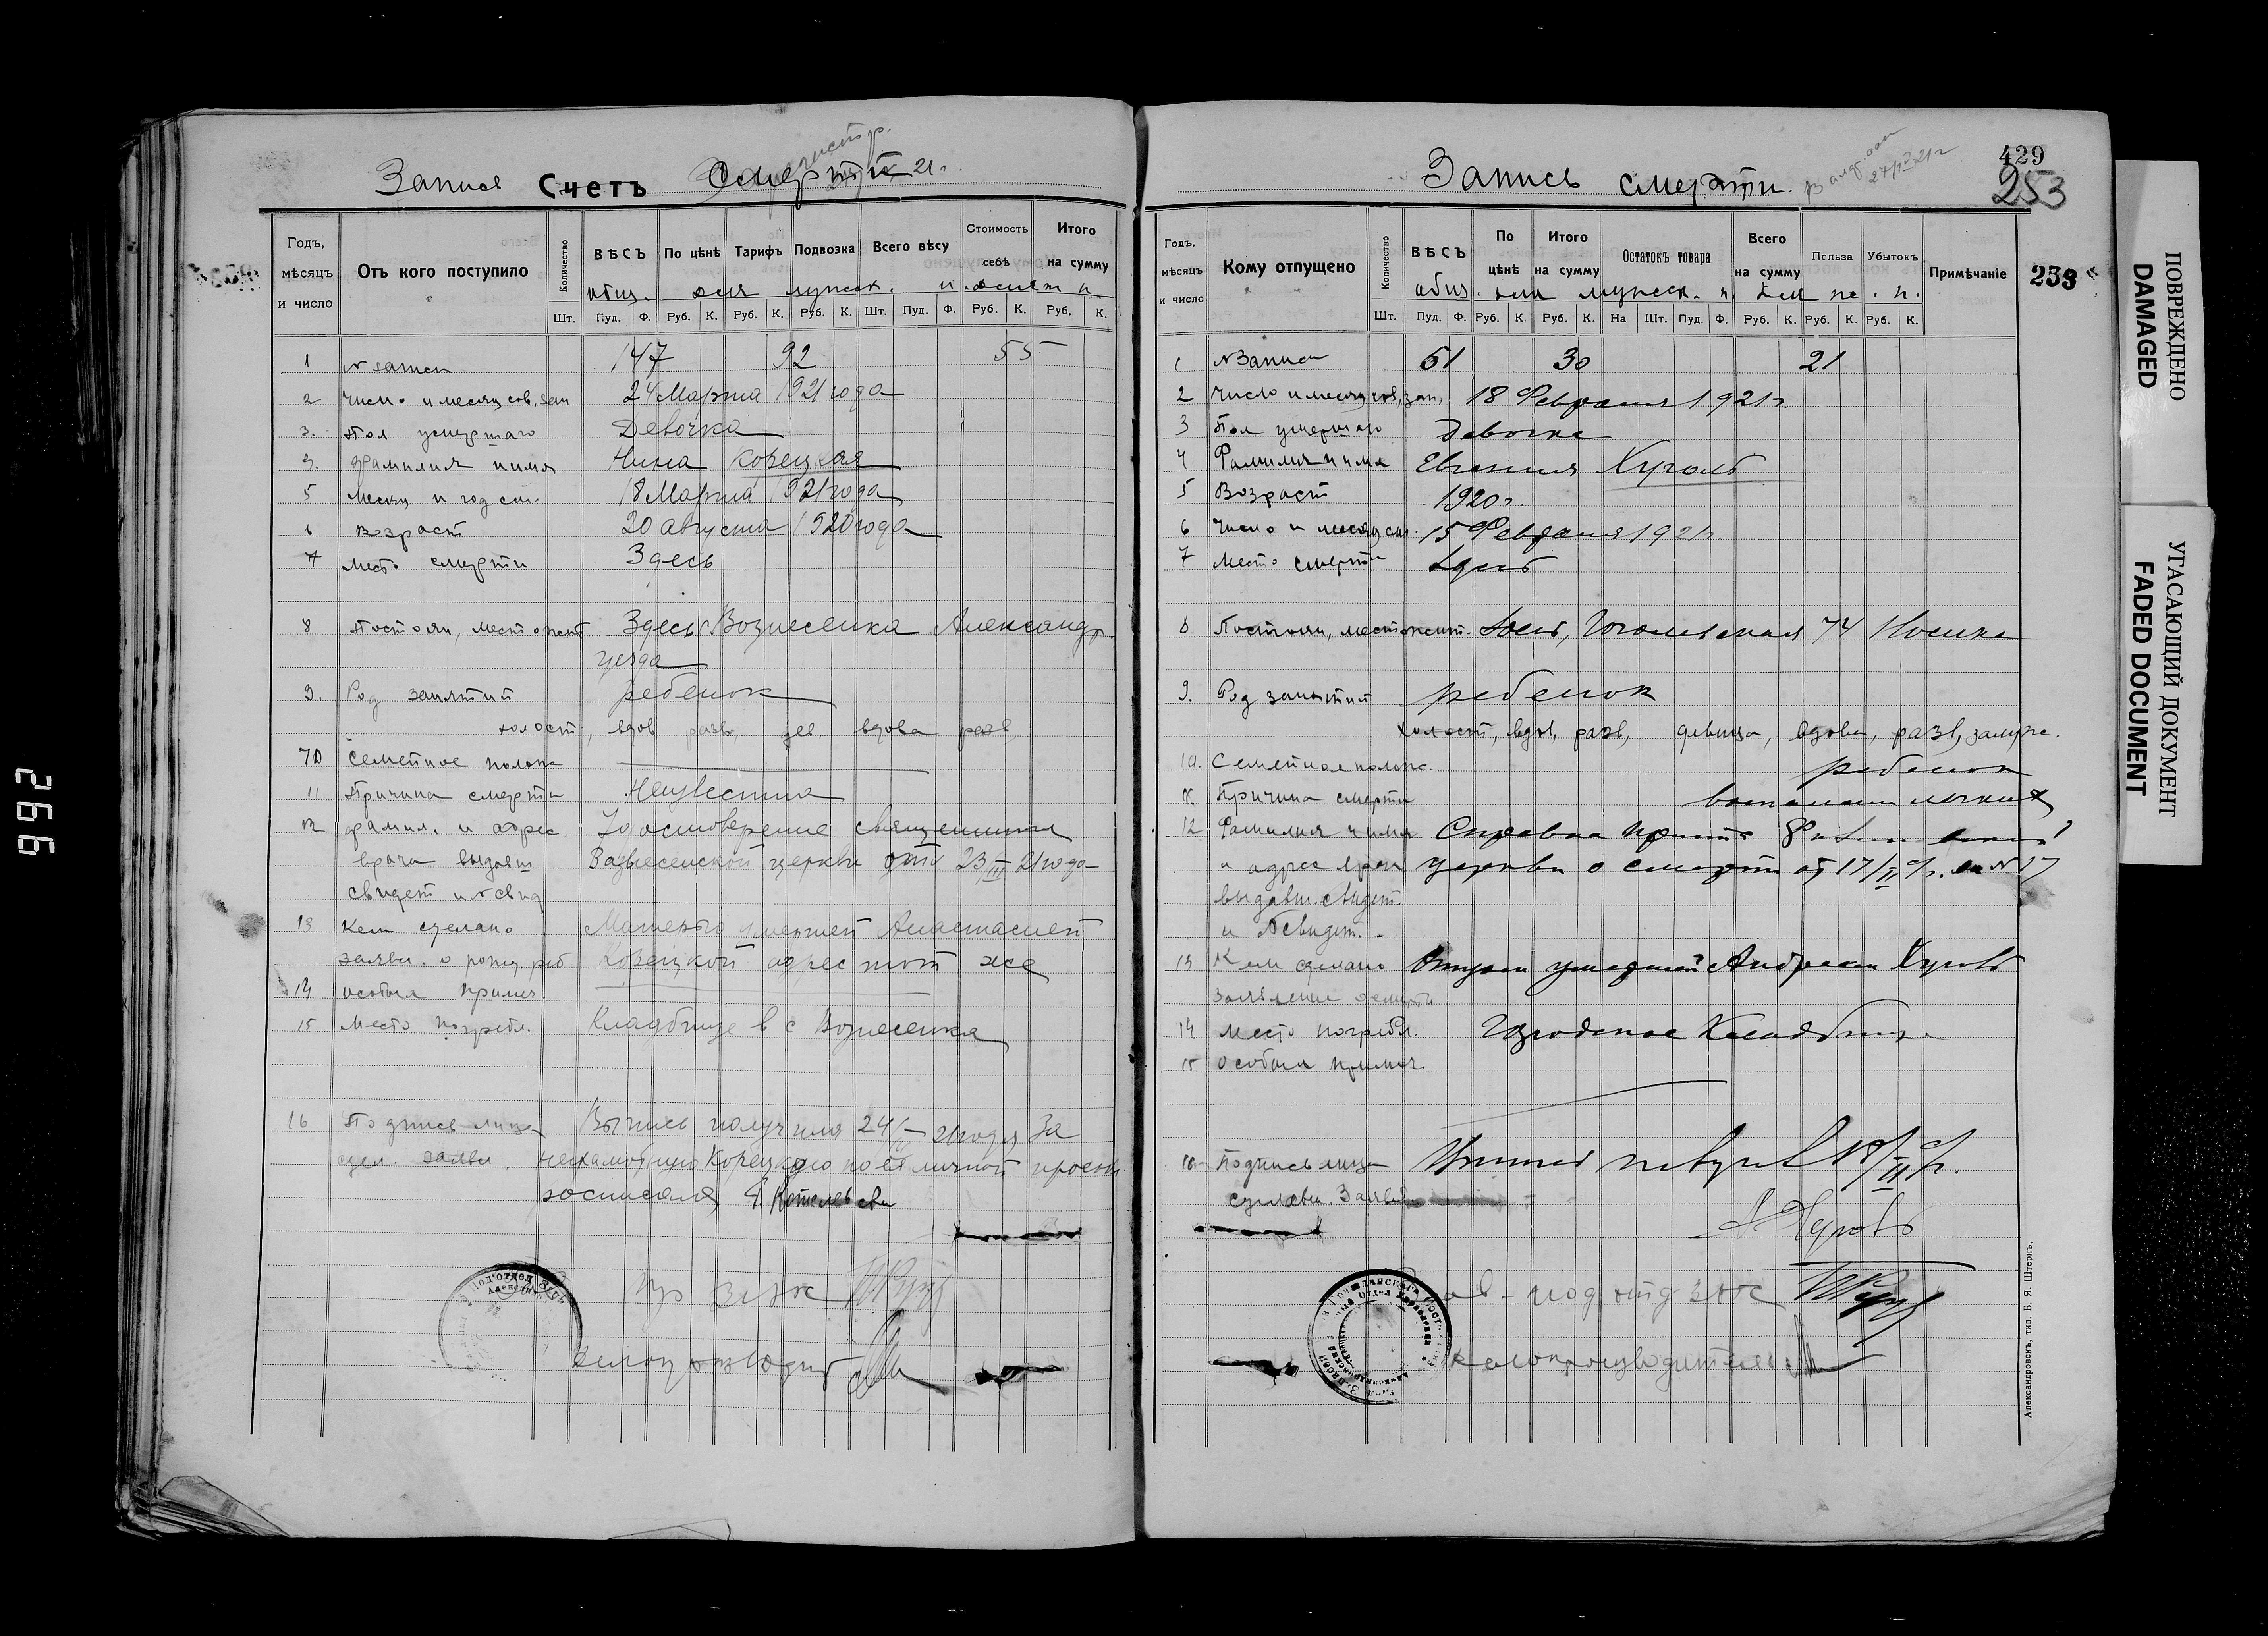 Запись Счетъ смерти
Годъ, мѣсяцъ и число
Отъ кого поступило
Количество
ВѢСЪ
По цѣнѣ
Тарифъ
Подвозка
Всего вѣсу
Стоимость себѣ
Итого на сумму
общ. для мужск. и женск п.
Шт. Пуд. Ф. Руб. К. Руб. К. Руб. К. Шт. Пуд. Ф. Руб. К. Руб. К.
1 № записи 147 92 55
2 Число и месяц сов. зап 24 Марта 1921 года
3. Пол умершаго Девочка
Фамилия и имя Нина Корецкая
5 Месяц и год см. 18 Марта 1921 года
6 Возраст 20 августа 1920 года
7 Место смерти Здесь
8 Постоян, место жит Здесь Вознесенка Александр.
уезда
9. Род занятий ребенок
холост, вдов разв дев вдова разв
10 Семейное полож
11 Причина смерти Неизвестна
12 фамил. и адрес Удостоверение священника
врача выдавш Вознесенской церкви от 23/III 21 года
свидет и № свид
13 Кем сделано Матерью умершей Анастасией
заявл. о рожд. реб Корецкой адрес тот же
14 особыя примеч
15 Место погребл. Кладбище в с Вознесенка
16 Подпись лица Выпись получила 24/III 21 года За
сдел. заявл. неграмотную Корецкую по её личной просьбе
росписался
429
253
Запись смерти.
Годъ, мѣсяцъ и число
Кому отпущено
Количество
ВѢСЪ
По цѣнѣ
Итого на сумму
Остатокъ товара
Всего на сумму
Польза
Убытокъ
Примѣчаніе
253
общ. для мужск. п. для же. п.
Шт. Пуд. Ф. Руб. К. Руб. К. На Шт. Пуд. Ф. Руб. К. Руб. К. Руб. К.
1 № Записи 51 30 21
2 Число и месяц сов, зап, 18 Февраля 1921 г.
3 Пол умершаго Девочка
4 Фамилия и имя Евгения
5 Возраст 1920 г.
6 Число и месяц см. 15 Февраля 1921 г.
7 Место смерти Здесь
8 Постоян, мест жит. Здесь, Гоголевская 74
9. Род занятий ребенок
холост, вдов, разв, девица, вдова, разв, замуж.
10. Семейное полож. ребенок
11. Причина смерти воспаление легких
12 Фамилия и имя Справка
и адрес врач церкви о смерти от 17/II с/г. за № 17
выдавш. свидет.
и № свидет.
13 Кем сделано Отцом умершей Андреем
Заявление о смерти
14 Место погребл. Городское Кладбище
15 Особыя примеч.
16 Подпись лица Выпись получил 18/II с/г.
сделавш. Заявл.
Зав. подотд ЗАГС
Делопроизводитель
Александровскъ, тип. Б. Я. Штернъ.
ПОВРЕЖДЕНО
DAMAGED
УГАСАЮЩИЙ ДОКУМЕНТ
FADED DOCUMENT
266